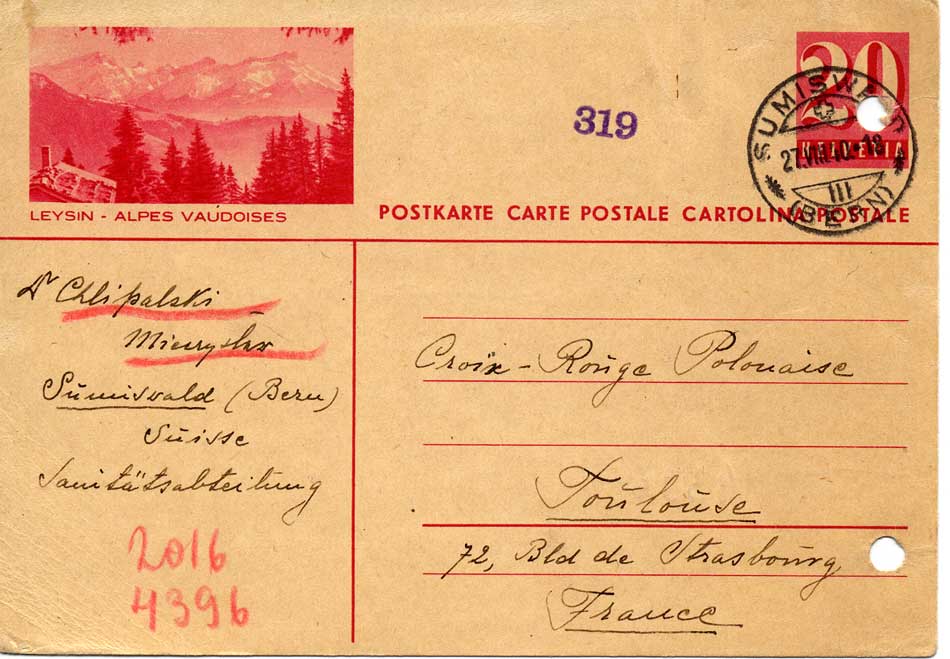 20
HELVETIA
SUMISWALD
27.VIII.40.-18
III
(BERN)
319
LEYSIN - ALPES VAUDOISES
POSTKARTE CARTE POSTALE CARTOLINA POSTALE
Dr Chlipalski
Mieczysław
Sumiswald (Bern)
Suisse
Sanitätsabteilung
2016
4396
Croix-Rouge Polonaise
Toulouse
72, Bld de Strasbourg
France